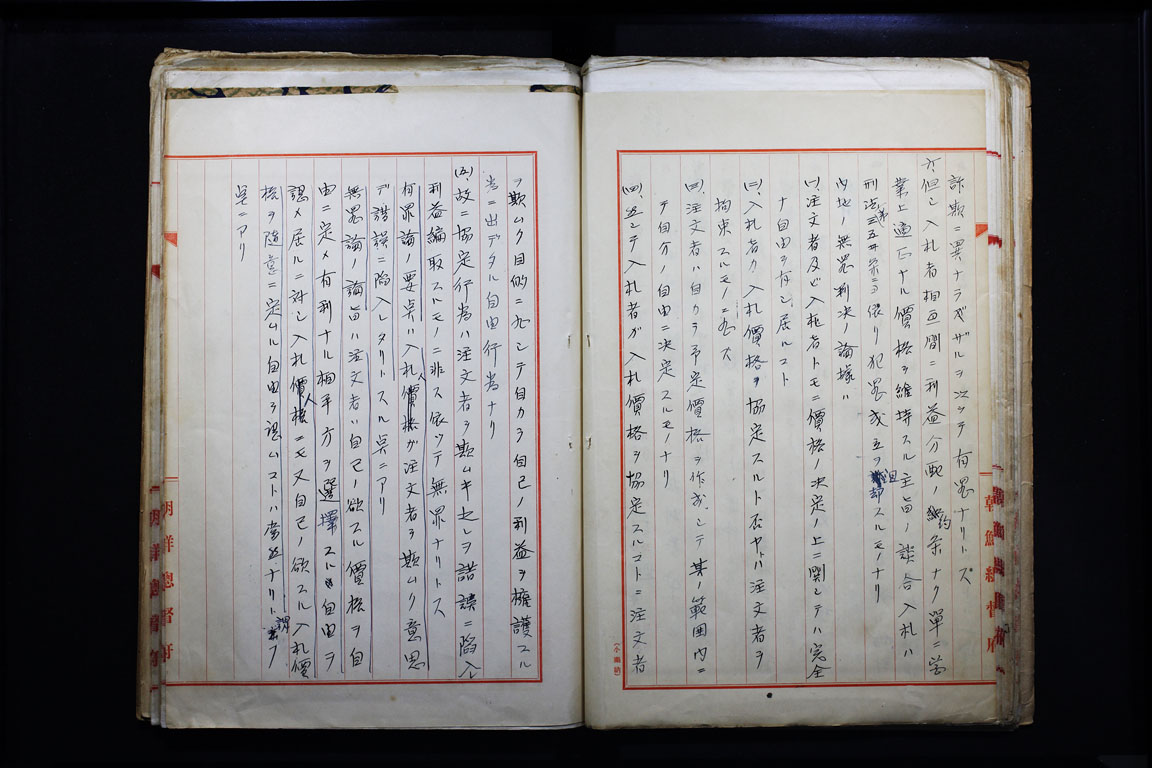 詐欺ニ異ナラザザルヲ次ッテ有罪ナリトズ
六、但シ入札者相互間ニ利益分配ノ約束ナク單ニ営
業上適正ナル價格ヲ維持スル主旨ノ談合入札ハ
刑法第三五条ニヨ依リ犯罪成立ヲ阻却スルモノナリ
内地ノ無罪判決ノ論據ハ
(一)、注文者及ビ入札者トモニ價格ノ決定ノ上ニ關シテハ完全
ナ自由ヲ有シ居ルコト
(二)、入札者ガ入札價格ヲ協定スルト否ヤトハ注文者ヲ
拘束スルモノニ非ズ
(三)、注文者ハ自カラ予定價格ヲ作成シテ其ノ範囲内ニ
テ自分ノ自由ニ決定スルモノナリ
(四)、並シテ入札者ガ入札價格ヲ協定スルコトニ注文者
ヲ欺ムク目的ニ非シテ自カラ自己ノ利益ヲ擁護スル
為ニ出デタル自由行為ナリ
(五)、故ニ協定行為ハ注文者ヲ欺ムキ之レヲ錯誤ニ陥入レ
利益騙取スルモノニ非ス依ツテ無罪ナリトス
有罪論ノ要点ハ入札價格ガ注文者ヲ欺ムク意思
デ錯誤ニ陥入レタリトスル点ニアリ
無罪論ノ論旨ハ注文者ハ自己ノ欲スル價格ヲ自
由ニ定メ有利ナル相手方ヲ選擇スル自由ヲ
認メ居ルニ対シ入札人ニモ又自己ノ欲スル入札價
格ヲ随意ニ定ムル自由ヲ認ムコトハ当然ナリト謂フ
点ニアリ
朝鮮總督府
朝鮮總督府